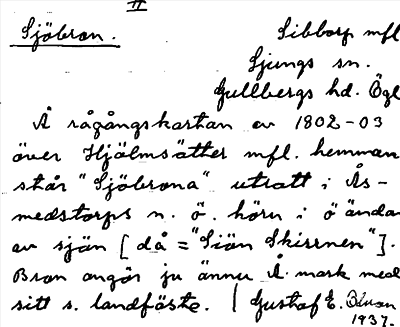 II
Sjöbron.
Sibborp mfl
Ljungs sn.
Gullbergs hd. Ögl
Å rågångskartan av 1802-03
över Hjälmsätter mfl. hemman
står "Sjöbrona" utsatt i Ås-
medstorps n. ö. hörn i ö ändan
av sjön [då = "Siön Skirrnen"].
Bron angör ju ännu Å. mark med
sitt s. landfäste. | Gustaf E.
1937.